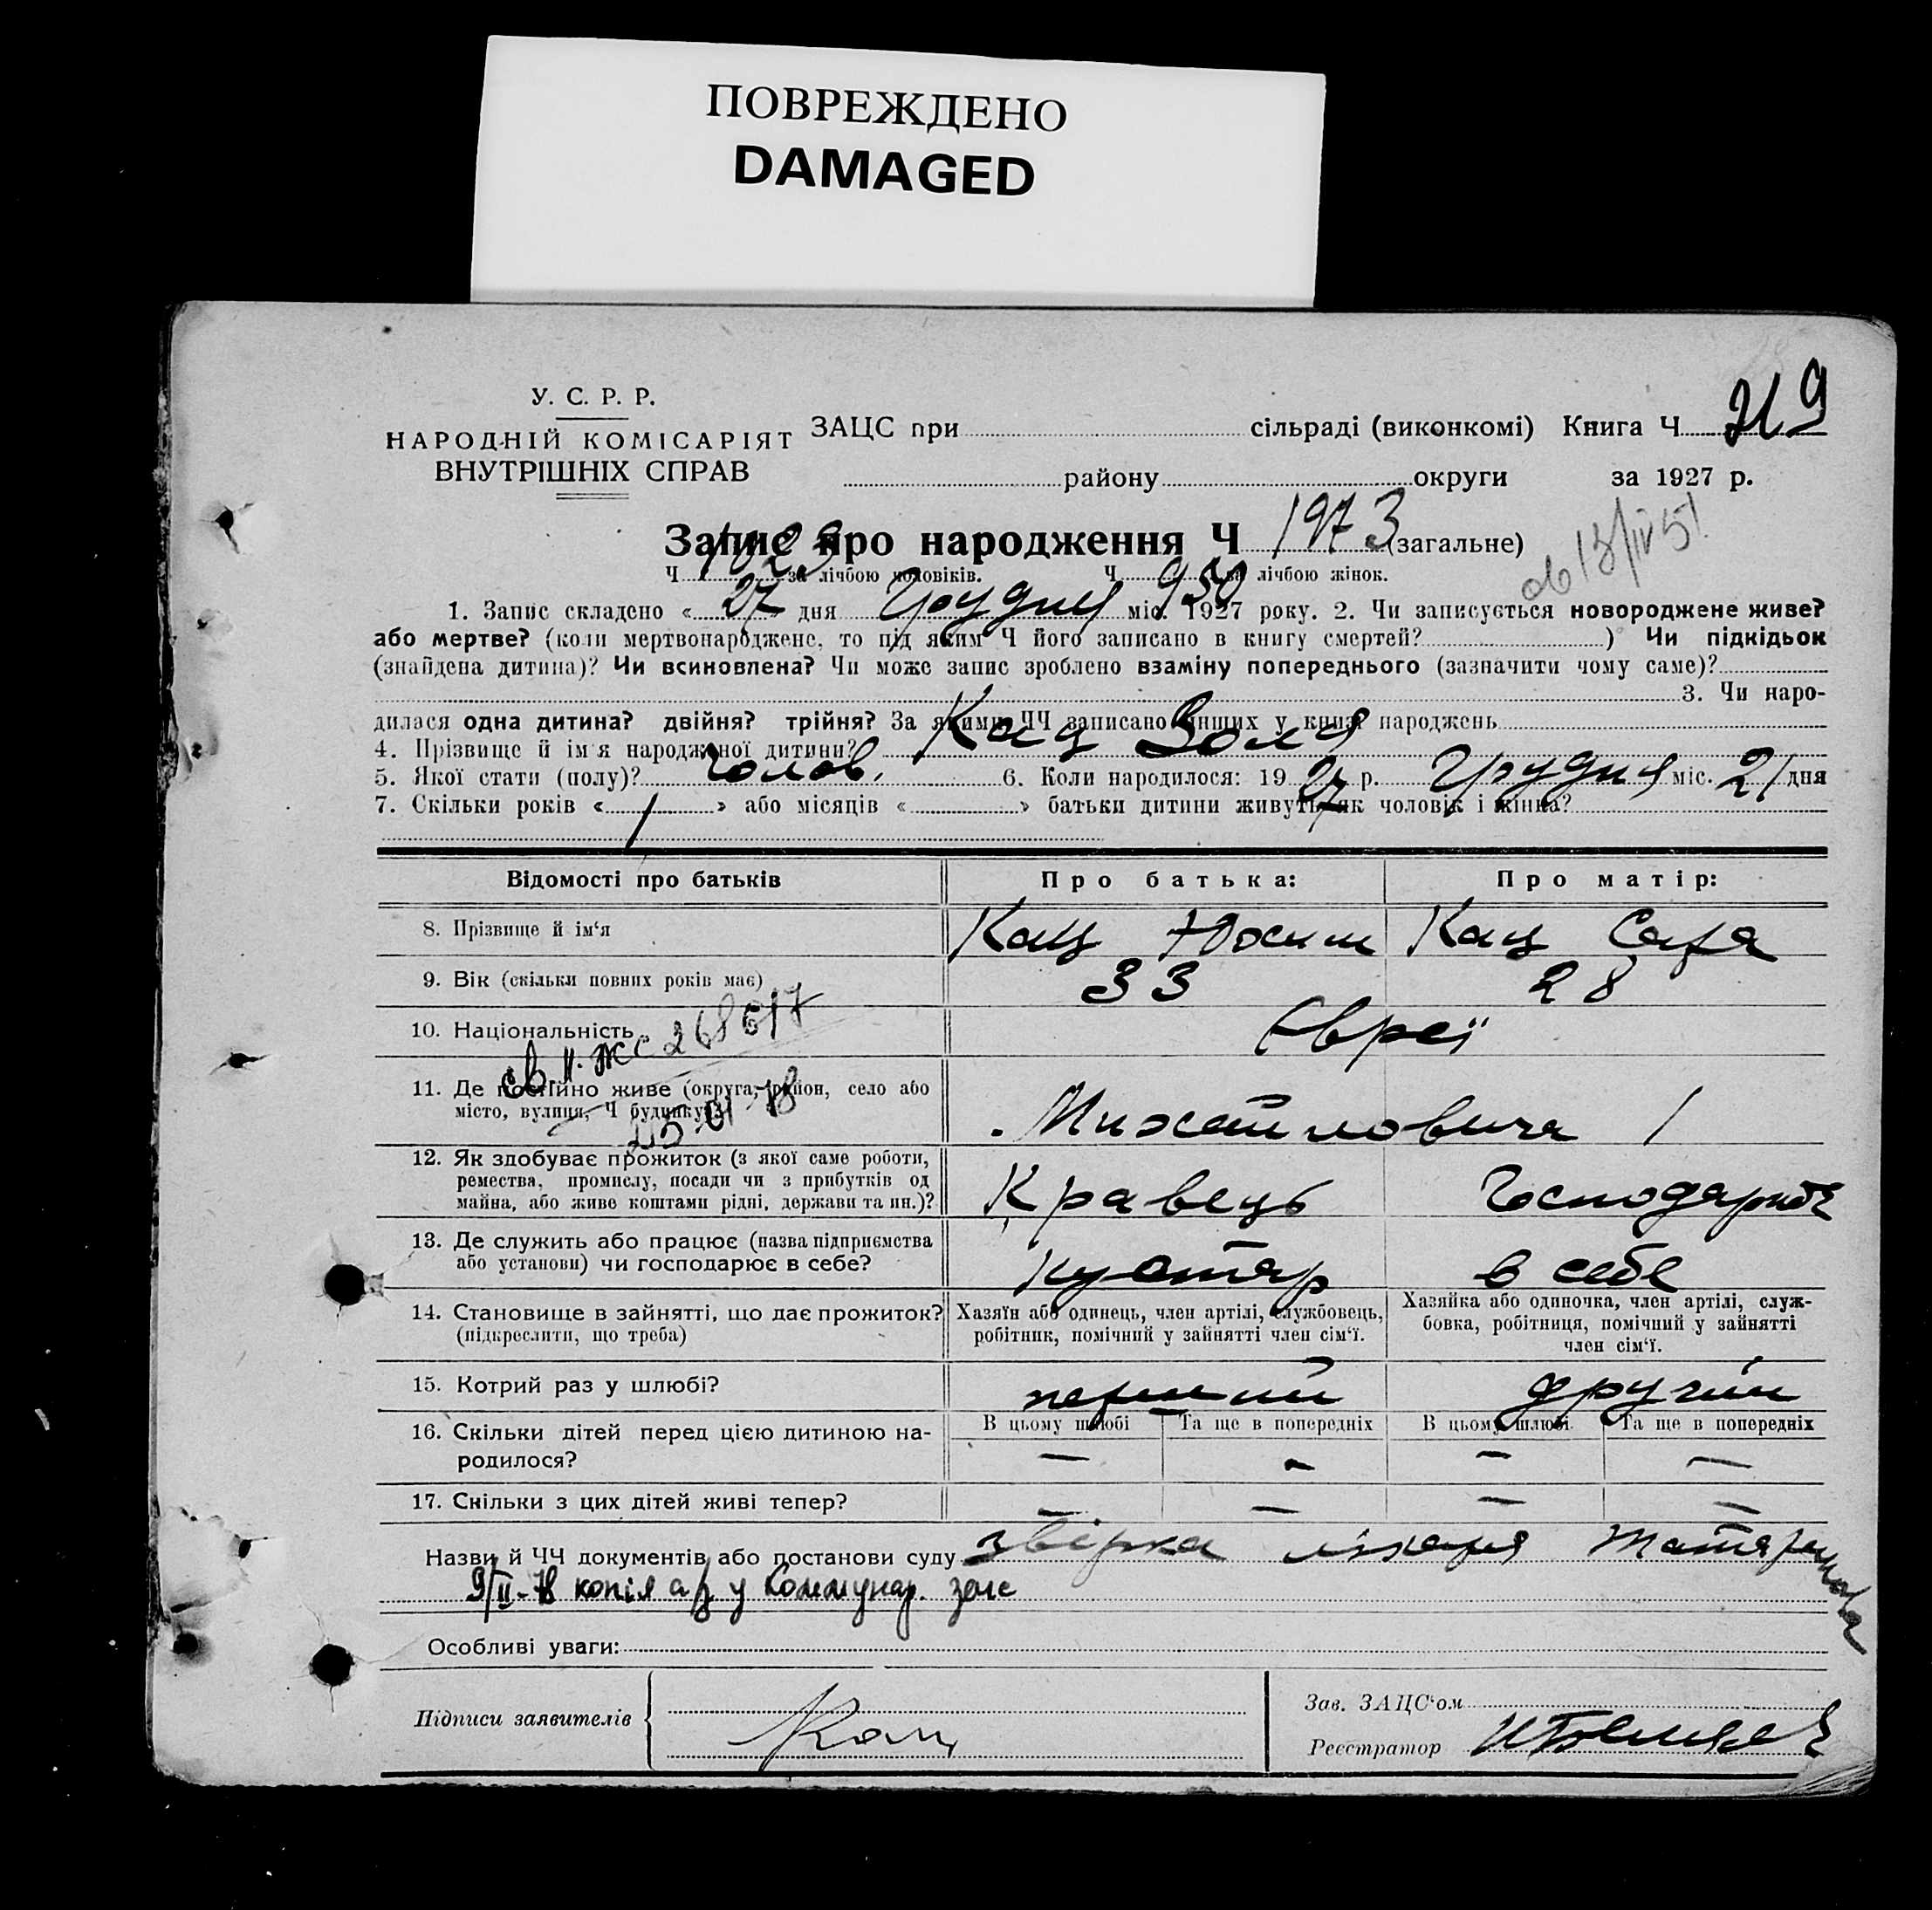 ПОВРЕЖДЕНО
DAMAGED
У. С. Р. Р.
НАРОДНІЙ КОМІСАРІЯТ
ВНУТРІШНІХ СПРАВ
ЗАЦС при сільраді (виконкомі) Книга Ч 219
району округи за 1927 р.
Запис про народження Ч 1973 (загальне)
Ч 1023 за лічбою чоловіків. Ч 950 за лічбою жінок.
1. Запис складено « 27 » дня Грудня міс. 1927 року. 2. Чи записується новороджене живе?
або мертве? (коли мертвонароджене, то під яким Ч його записано в книгу смертей? ) Чи підкідьок
(знайдена дитина)? Чи всиновлена? Чи може запис зроблено взаміну попереднього (зазначити чому саме)?
3. Чи наро-
дилася одна дитина? двійня? трійня? За якими ЧЧ записано інших у книзі народжень
4. Прізвище й ім'я народженої дитини? Кац Золя
5. Якої стати (полу)? чолов. 6. Коли народилося: 19 27 р. Грудня міс. 21 дня
7. Скільки років « 1 » або місяців « » батьки дитини живуть як чоловік і жінка?
Відомості про батьків Про батька: Про матір:
8. Прізвище й ім'я Кац Юсип Кац Сара
9. Вік (скільки повних років має) 33 28
10. Національність Євреї
11. Де постійно живе (округа, район, село або
місто, вулиця, Ч будинку)? Михайловича 1
12. Як здобуває прожиток (з якої саме роботи,
ремества, промислу, посади чи з прибутків од
майна, або живе коштами рідні, держави та ин.)? Кравець Господарює
13. Де служить або працює (назва підприємства
або установи) чи господарює в себе? Кустар в себе
14. Становище в зайнятті, що дає прожиток?
(підкреслити, що треба)
Хазяїн або одинець, член артілі, службовець,
робітник, помічний у зайнятті член сім'ї.
Хазяйка або одиночка, член артілі, служ-
бовка, робітниця, помічний у зайнятті
член сім'ї.
15. Котрий раз у шлюбі? перший другий
В цьому шлюбі Та ще в попередніх В цьому шлюбі Та ще в попередніх
16. Скільки дітей перед цією дитиною на-
родилося? — — — —
17. Скільки з цих дітей живі тепер? — — — —
Назви й ЧЧ документів або постанови суду лікаря
9/II-78 копія а/з у Коммунар. загс
Особливі уваги:
Підписи заявителів Кац
Зав. ЗАЦС'ом
Реєстратор